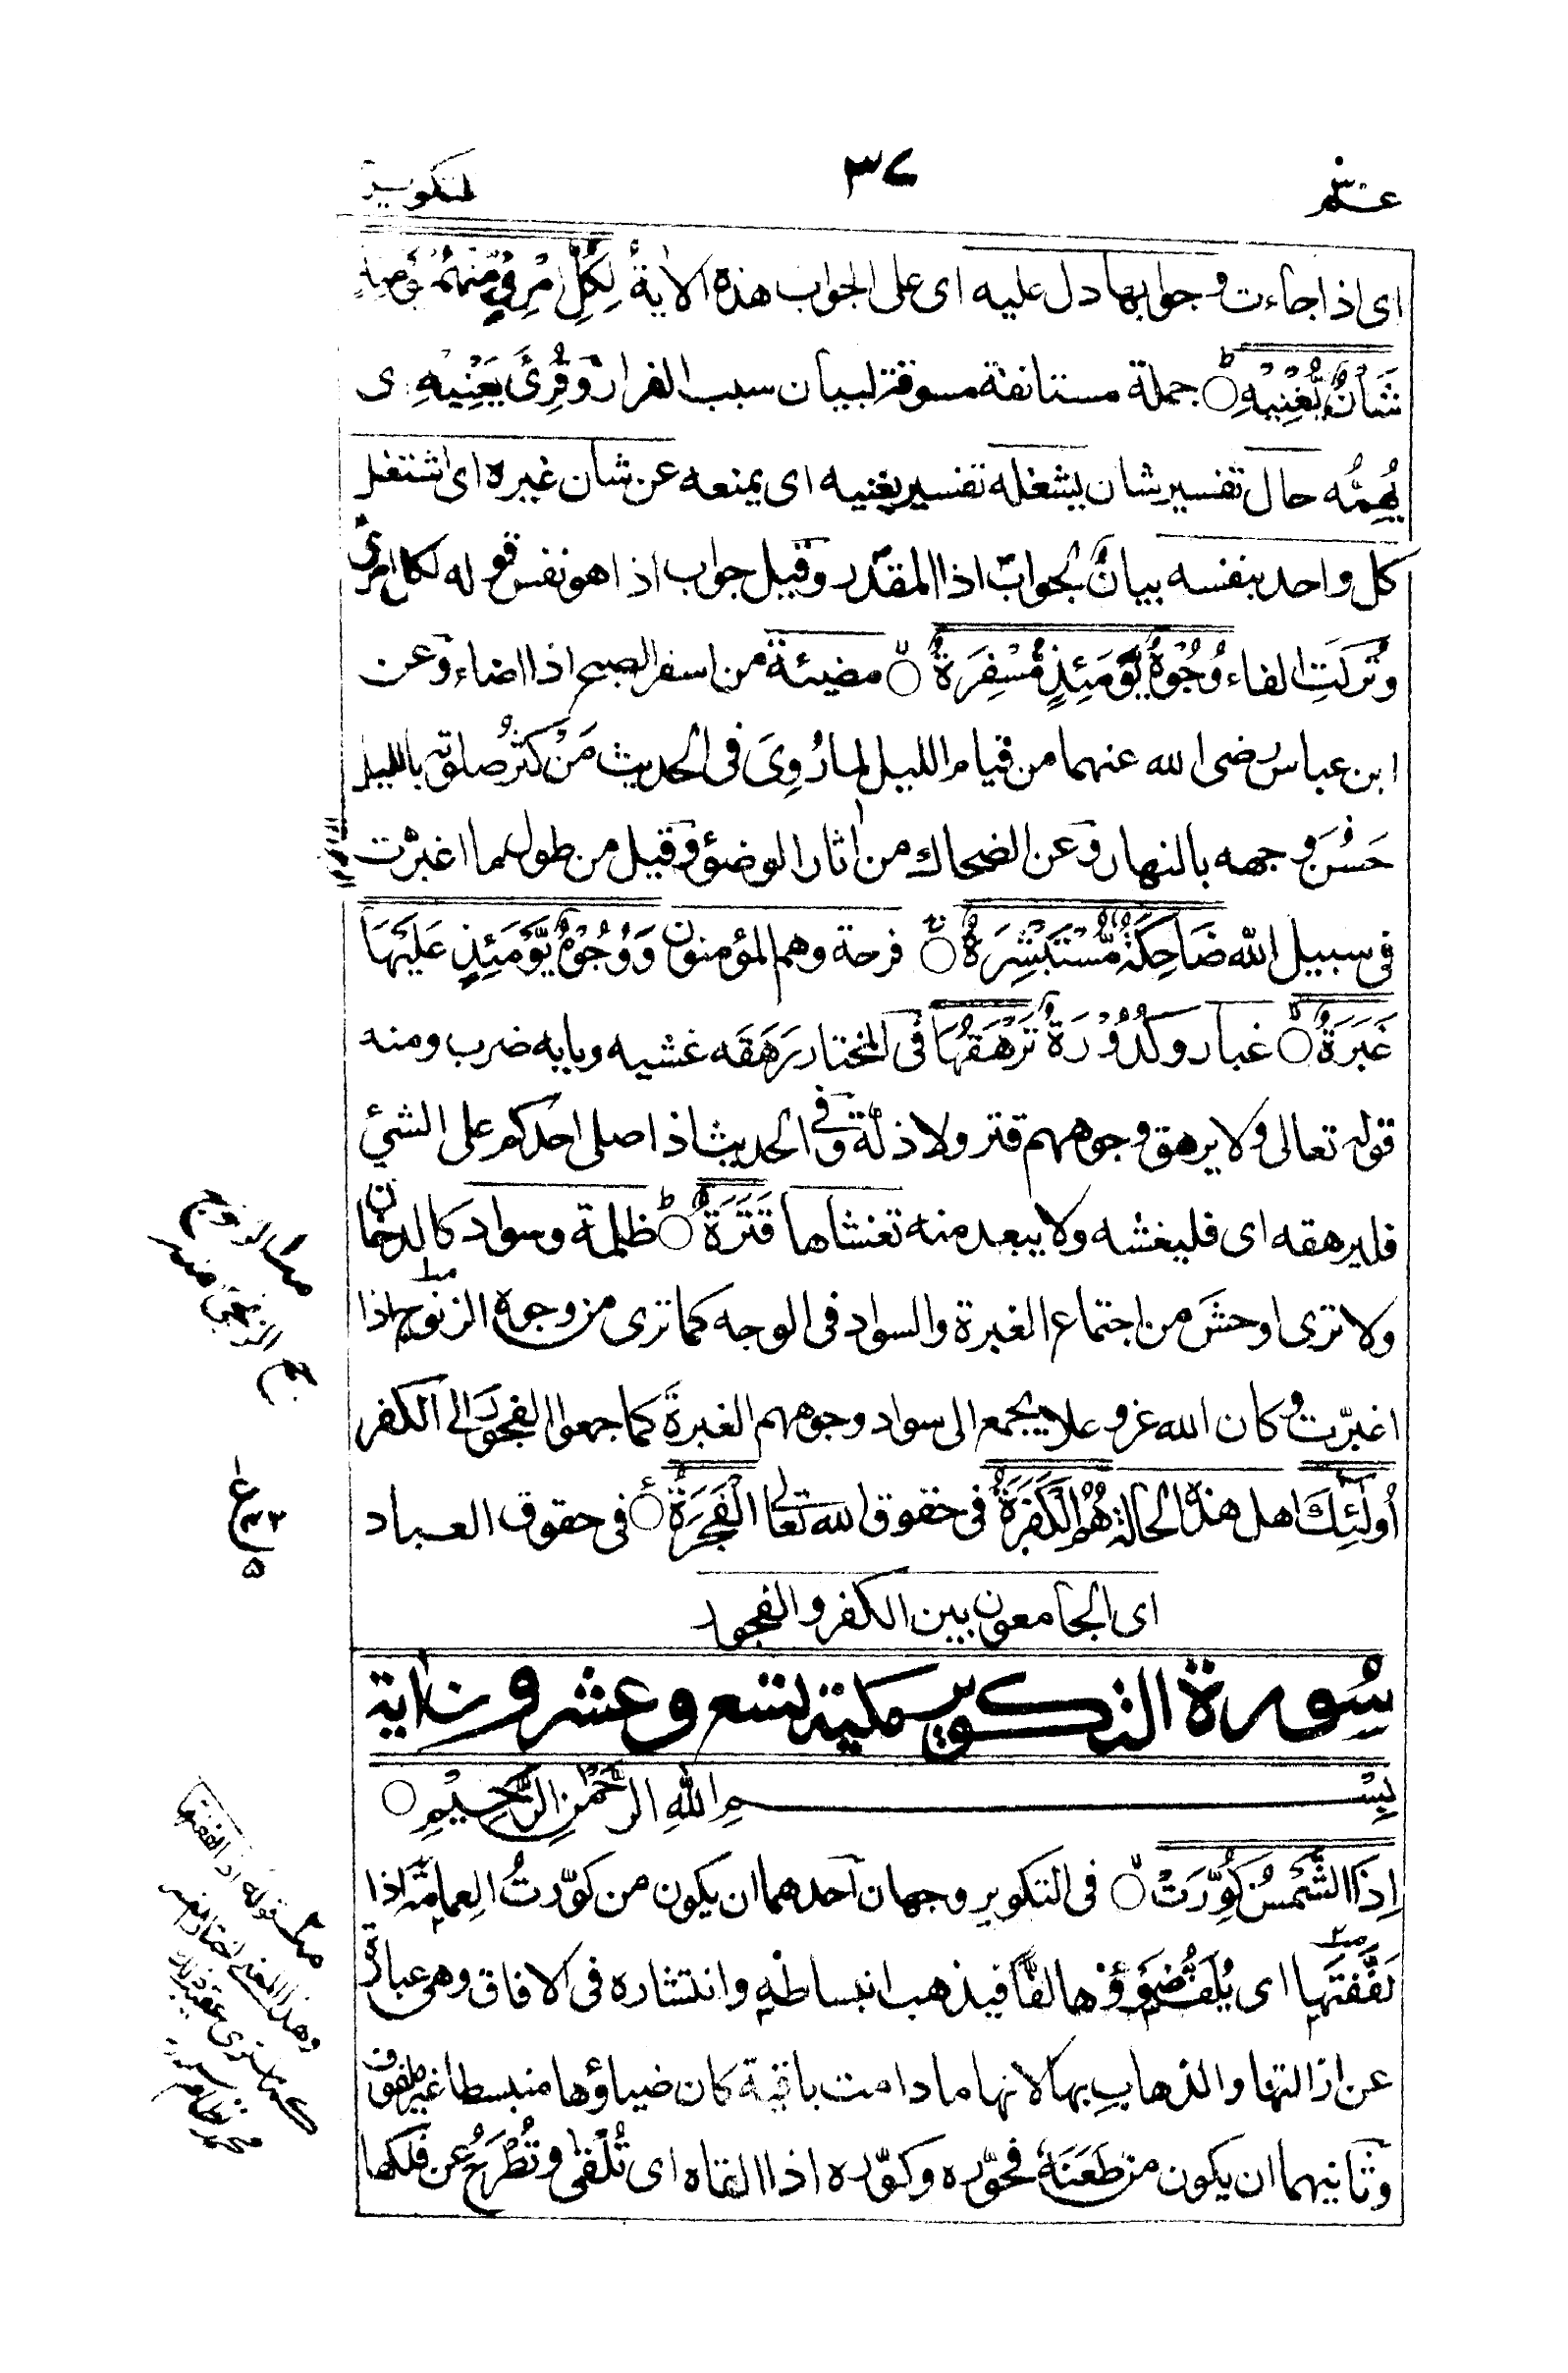 عم ٣٠
٣٧
التكوير
اى اذا جاءت وجوابها دل عليه اى على الجواب هذه الاية لِكُلِّ امْرِئٍ مِّنْهُمْ يَوْمَئِذٍ
شَاْنٌ يُّغْنِيْهِ جملة مستانفة مسوقة لبيان سبب الفرار وَقُرِئَ يَعْنِيْهِ اى
يُهِمُّه حال تفسير شان يشغله تفسير يغنيه اى يمنعه عن شان غيره اى اشتغل
كل واحد بنفسه بيانٌ لجواب اذا المقدر وقيل جواب اذا هو نفس قوله لكل امرئ
وتُركَتِ الفاء وُجُوْهٌ يَّوْمَئِذٍ مُّسْفِرَةٌ مضيئة من اسفر الصبح اذا اضاء وعن
ابن عباس رضى الله عنهما من قيام الليل لما رُوِىَ فى الحديث مَنْ كثُر صلوته بالليل
حَسُنَ وجهه بالنهار وعن الضحاك من اثار الوضوء وقيل من طول ما اغبرّت
فى سبيل الله ضَاحِكَةٌ مُّسْتَبْشِرَةٌ فرحة وهم المؤمنون وَوُجُوْهٌ يَّوْمَئِذٍ عَلَيْهَا
غَبَرَةٌ غبار وكُدُوْرَة تَرْهَقُهَا فى المختار رَهَقَه غشيه وبابه ضرب ومنه
قوله تعالى ولا يرهق وجوههم قتر ولا ذلة وفى الحديث اذا صلى احدكم على الشئ
فليرهقه اى فليغشه ولا يبعد منه تغشاها قَتَرَةٌ ظلمة وسواد كالدخان
ولا ترى اوحشَ من اجتماع الغبرة والسواد فى الوجه كما ترى من وجوه الزنوج اذا
اغبرّت وكان الله عز وعلا يجمع الى سواد وجوههم الغبرةَ كما جمعوا الفجور الى الكفر
اُولٰٓئِكَ اهل هذه الحالة هُمُ الْكَفَرَةُ فى حقوق الله تعالى الْفَجَرَةُ فى حقوق العباد
اى الجامعون بين الكفر والفجور
ع ٥
سُورة التكوير مكية تسع وعشرون اية
بِسْمِ اللهِ الرَّحْمٰنِ الرَّحِيْمِ
اِذَا الشَّمْسُ كُوِّرَتْ فى التكوير وجهان احدهما ان يكون من كوّرتُ العمامة اذا
لَفَّفْتَها اى يُلَفُّ ضَوْؤُها لفًّا فيذهب انبساطه وانتشاره فى الافاق وهى عبارة
عن ازالتها والذهابِ بها لانها ما دامت باقية كان ضياؤها منبسطا غير ملفوف
وثانيهما ان يكون من طَعَنَهٗ فحوّره وكوّره اذا القاه اى تُلْقٰى وتُطْرَحُ عن فلكها